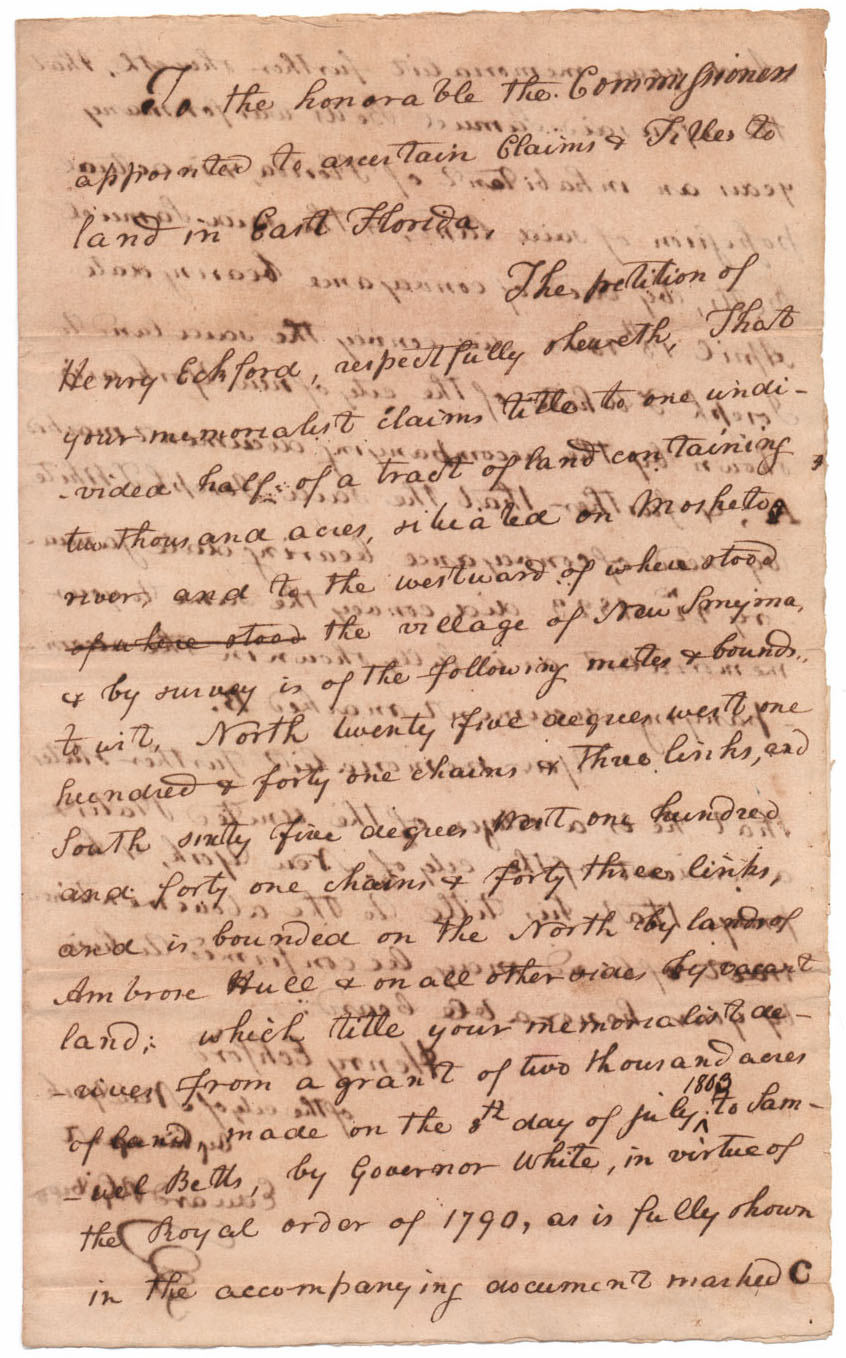 To the honorable the Commissioners
appointed to ascertain Claims & Titles to
land in East Florida,
The petition of
Henry Eckford, respectfully sheweth, That
your memorialist claims title to one undi-
-vided half of a tract of land containing
two thousand acres, situated on Mosketo
river, and to the westward of where stood
of where stood the village of New Smyrna,
& by survey is of the following metes & bounds,
to wit, North twenty five degrees west one
hundred & forty one chains & three links, and
South sixty five degrees West one hundred
and forty one chains & forty three links,
and is bounded on the North by lands of
Ambrose Hull & on all other sides by vacant
land; which title your memorialist de-
rives from a grant of two thousand acres
of land, made on the 8th day of july 1803 to Sam-
-uel Betts, by Governor White, in virtue of
the Royal order of 1790, as is fully shown
in the accompanying document marked C